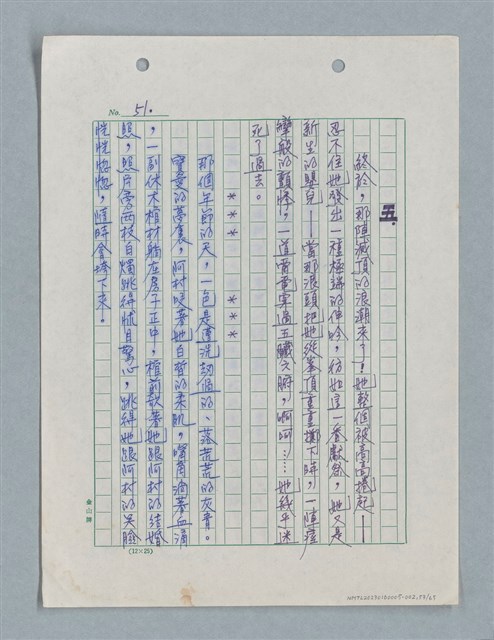 No. 51.
五、
終於，那陣滅頂的浪潮來了！她整個被高高捲起——
忍不住她發出一種極端的呻吟，彷彿這一番獻祭，她又是
新生的嬰兒——當那浪頭把她從峯頂重重擲下時，一陣痙
攣般的顫慄，一道雷電穿過五臟六腑，啊啊……她幾乎迷
死了過去。
＊＊＊　　＊＊＊
那個年節的天，一色是遭洗劫過的、落荒荒的灰青。
寶愛的夢裏，阿村咬著她白皙的柔肌，嘴角滴著血滴
，一副休木棺材躺在房子正中，棺前散著她跟阿村的結婚
照，照片旁兩枝白燭跳得怵目驚心，跳得她跟阿村的笑臉
恍恍惚惚，隨時會垮下來。
金山牌
(12×25)